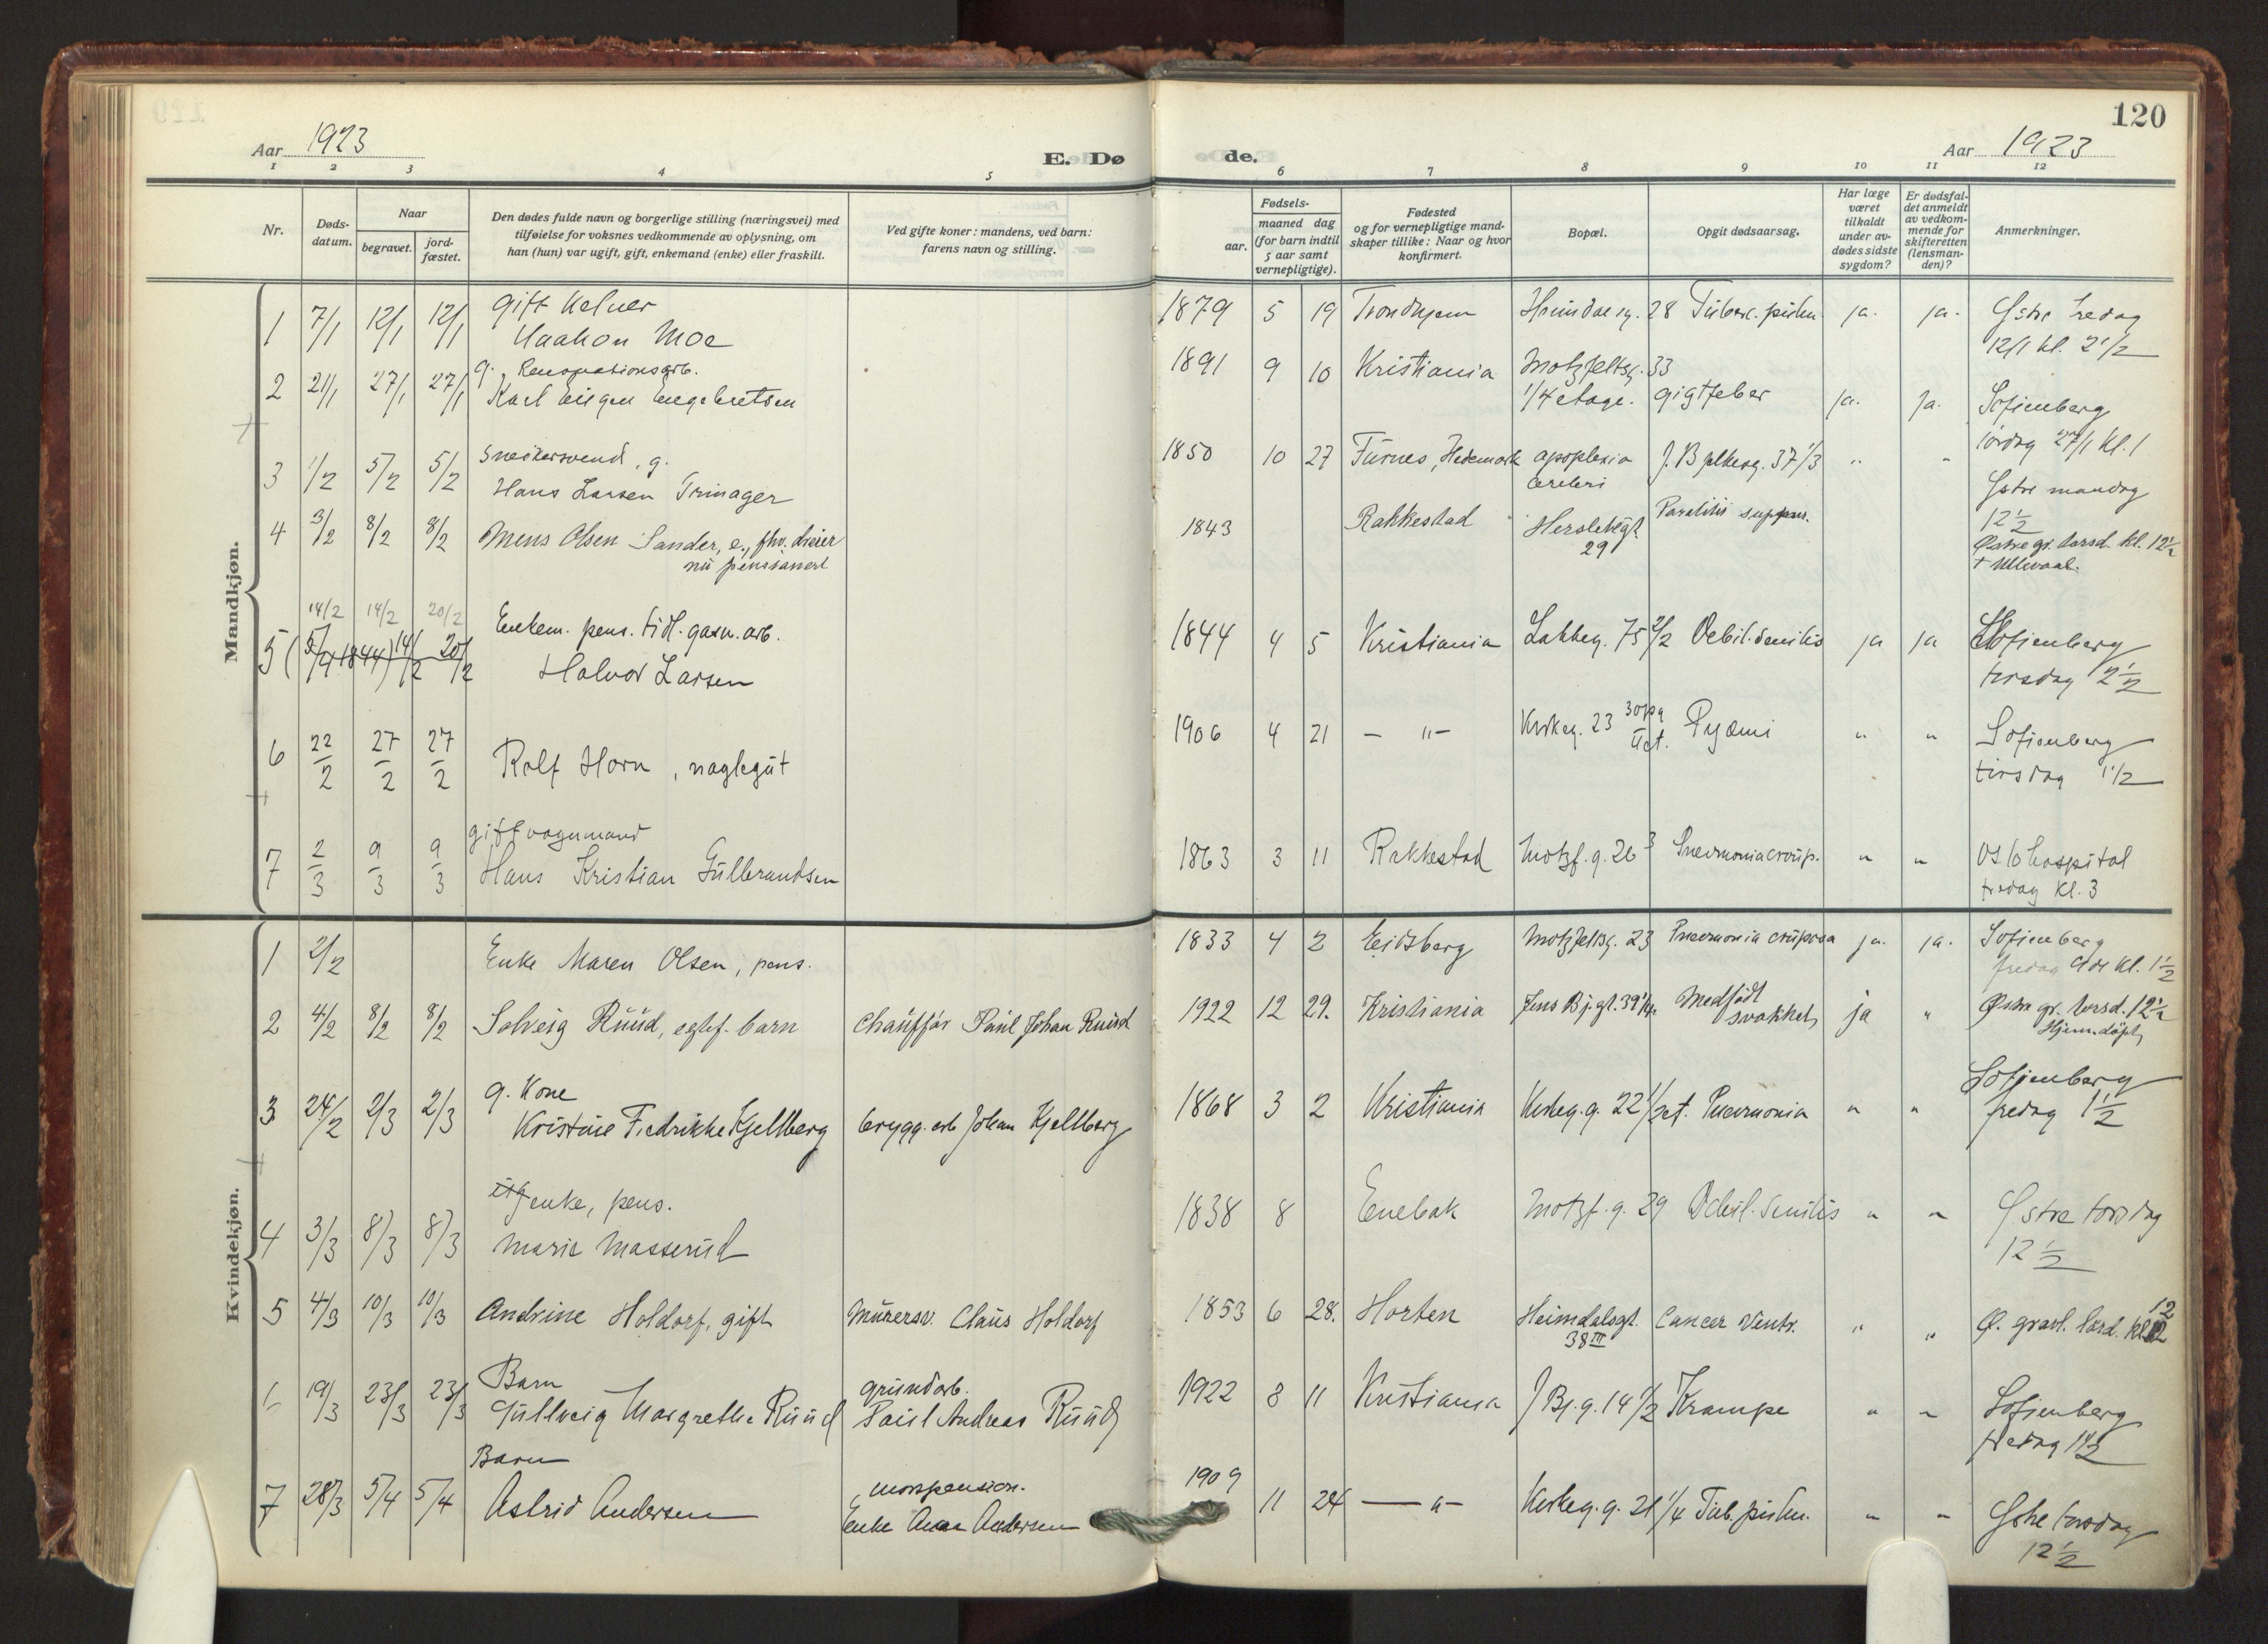 120
Aar 1923
E. Dø
de.
Aar 1923
1 2 3 4 5 6 7 8 9 10 11 12
Nr.
Døds-
datum.
Naar
begravet.
jord-
fæstet.
Den dødes fulde navn og borgerlige stilling (næringsvei) med
tilføielse for voksnes vedkommende av oplysning, om
han (hun) var ugift, gift, enkemand (enke) eller fraskilt.
Ved gifte koner: mandens, ved barn:
farens navn og stilling.
Fødsels-
aar.
maaned dag
(for barn indtil
5 aar samt
vernepligtige).
Fødested
og for vernepligtige mand-
skaper tillike: Naar og hvor
konfirmert.
Bopæl.
Opgit dødsaarsag.
Har læge
været
tilkaldt
under av-
dødes sidste
sygdom?
Er dødsfal-
det anmeldt
av vedkom-
mende for
skifteretten
(lensman-
den)?
Anmerkninger.
Mandkjøn.
gift Kelner
1 7/1 12/1 12/1 Haakon Moe 1879 5 19 Trondhjem Heimdalsg. 28 ja. ja. Østre fredag
12/1 kl. 2 1/2
g. Renovationsarb.
2 21/1 27/1 27/1 Karl Engebretsen 1891 9 10 Kristiania Motzfeltsg. 33
1/4 etage. gigtfeber ja. ja. Sofienberg
lørdag 27/1 kl. 1
Snekersvend, g.
3 1/2 5/2 5/2 Hans Larsen 1850 10 27 Furnes, Hedemark apoplexia
cerebri 37 1/3 " " Østre mandag
12 1/2
4 3/2 8/2 8/2 Mens Olsen Sander, e., fhv. dreier
nu pensionert 1843 Rakkestad Herslebsgt.
29 Østre gr. torsd. kl. 12 1/2
+ Ullevaal.
14/2 14/2 20/2
5 (5/4 1844) 14/2 20/2 Enkem. pens. tidl. gasv. arb.
Halvor Larsen 1844 4 5 Kristiania Lakkeg. 75 2/2 Debil. senilis ja ja Sofienberg
tirsdag 2 1/2
6 22/2 27/2 27/2 Rolf Horn, naglegut 1906 4 21 — " — Kirkeg. 23 Pyæmi " " Sofienberg
tirsdag 1 1/2
gift vognmand
7 2/3 9/3 9/3 Hans Kristian Gulbrandsen 1863 3 11 Rakkestad Motzf. g. 26 3 Pneumonia croup. " " Oslo hospital
fredag kl. 3
Kvindekjøn.
1 2/2 Enke Maren Olsen, pens. 1833 4 2 Eidsberg Motzfeltsg. 23 Pneumonia cruposa ja. ja. Sofienberg
fredag 9de kl. 1 1/2
2 4/2 8/2 8/2 Solveig Ruud, egtef. barn Chauffør Paul Johan Ruud 1922 12 29. Kristiania Jens Bj. gt. 39 Medfødt
svakhet ja " Østre gr. torsd. 12 1/2
Hjemmedøpt
g. Kone
3 24/2 2/3 2/3 Kristine Fredrikke Kjellberg brygg. arb Johan Kjellberg 1868 3 2 Kristiania Kirkeg. g. 22 Pneumonia " " Sofienberg
fredag 1 1/2
enke, pens.
4 3/3 8/3 8/3 Marie Masserud 1838 8 Enebak Motzf. g. 29 Debil. Senilis " " Østre torsdag
12 1/2
5 4/3 10/3 10/3 Andrine Holdorf, gift Murersv. Claus Holdorf 1853 6 28. Horten Heimdalsgt.
38 III Cancer Ventr. " " Ø. gravl. lørd. kl. 12
Barn
6 19/3 23/3 23/3 Gullveig Margrethe Ruud grundarb.
Paul Andreas Ruud 1922 8 11 Kristiania J Bj. g. 14 1/2 Krampe " " Sofienberg
fredag 1 1/2
Barn
7 28/3 5/4 5/4 Astrid Andersen morspension.
Enke Anna Andersen 1909 11 24 — " — Kirkeg. g. 21 1/4 " " Østre torsdag
12 1/2